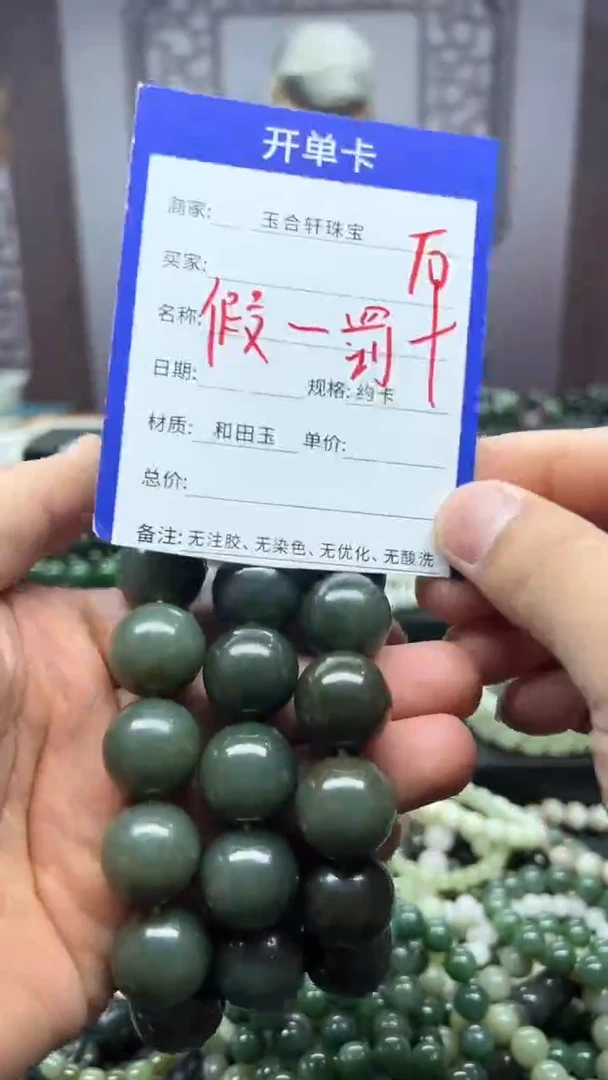 开单卡
商家: 玉合轩珠宝
买家:
名称: 假一罚十
日期:
规格: 约卡
材质: 和田玉 单价:
总价:
备注: 无注胶、无染色、无优化、无酸洗